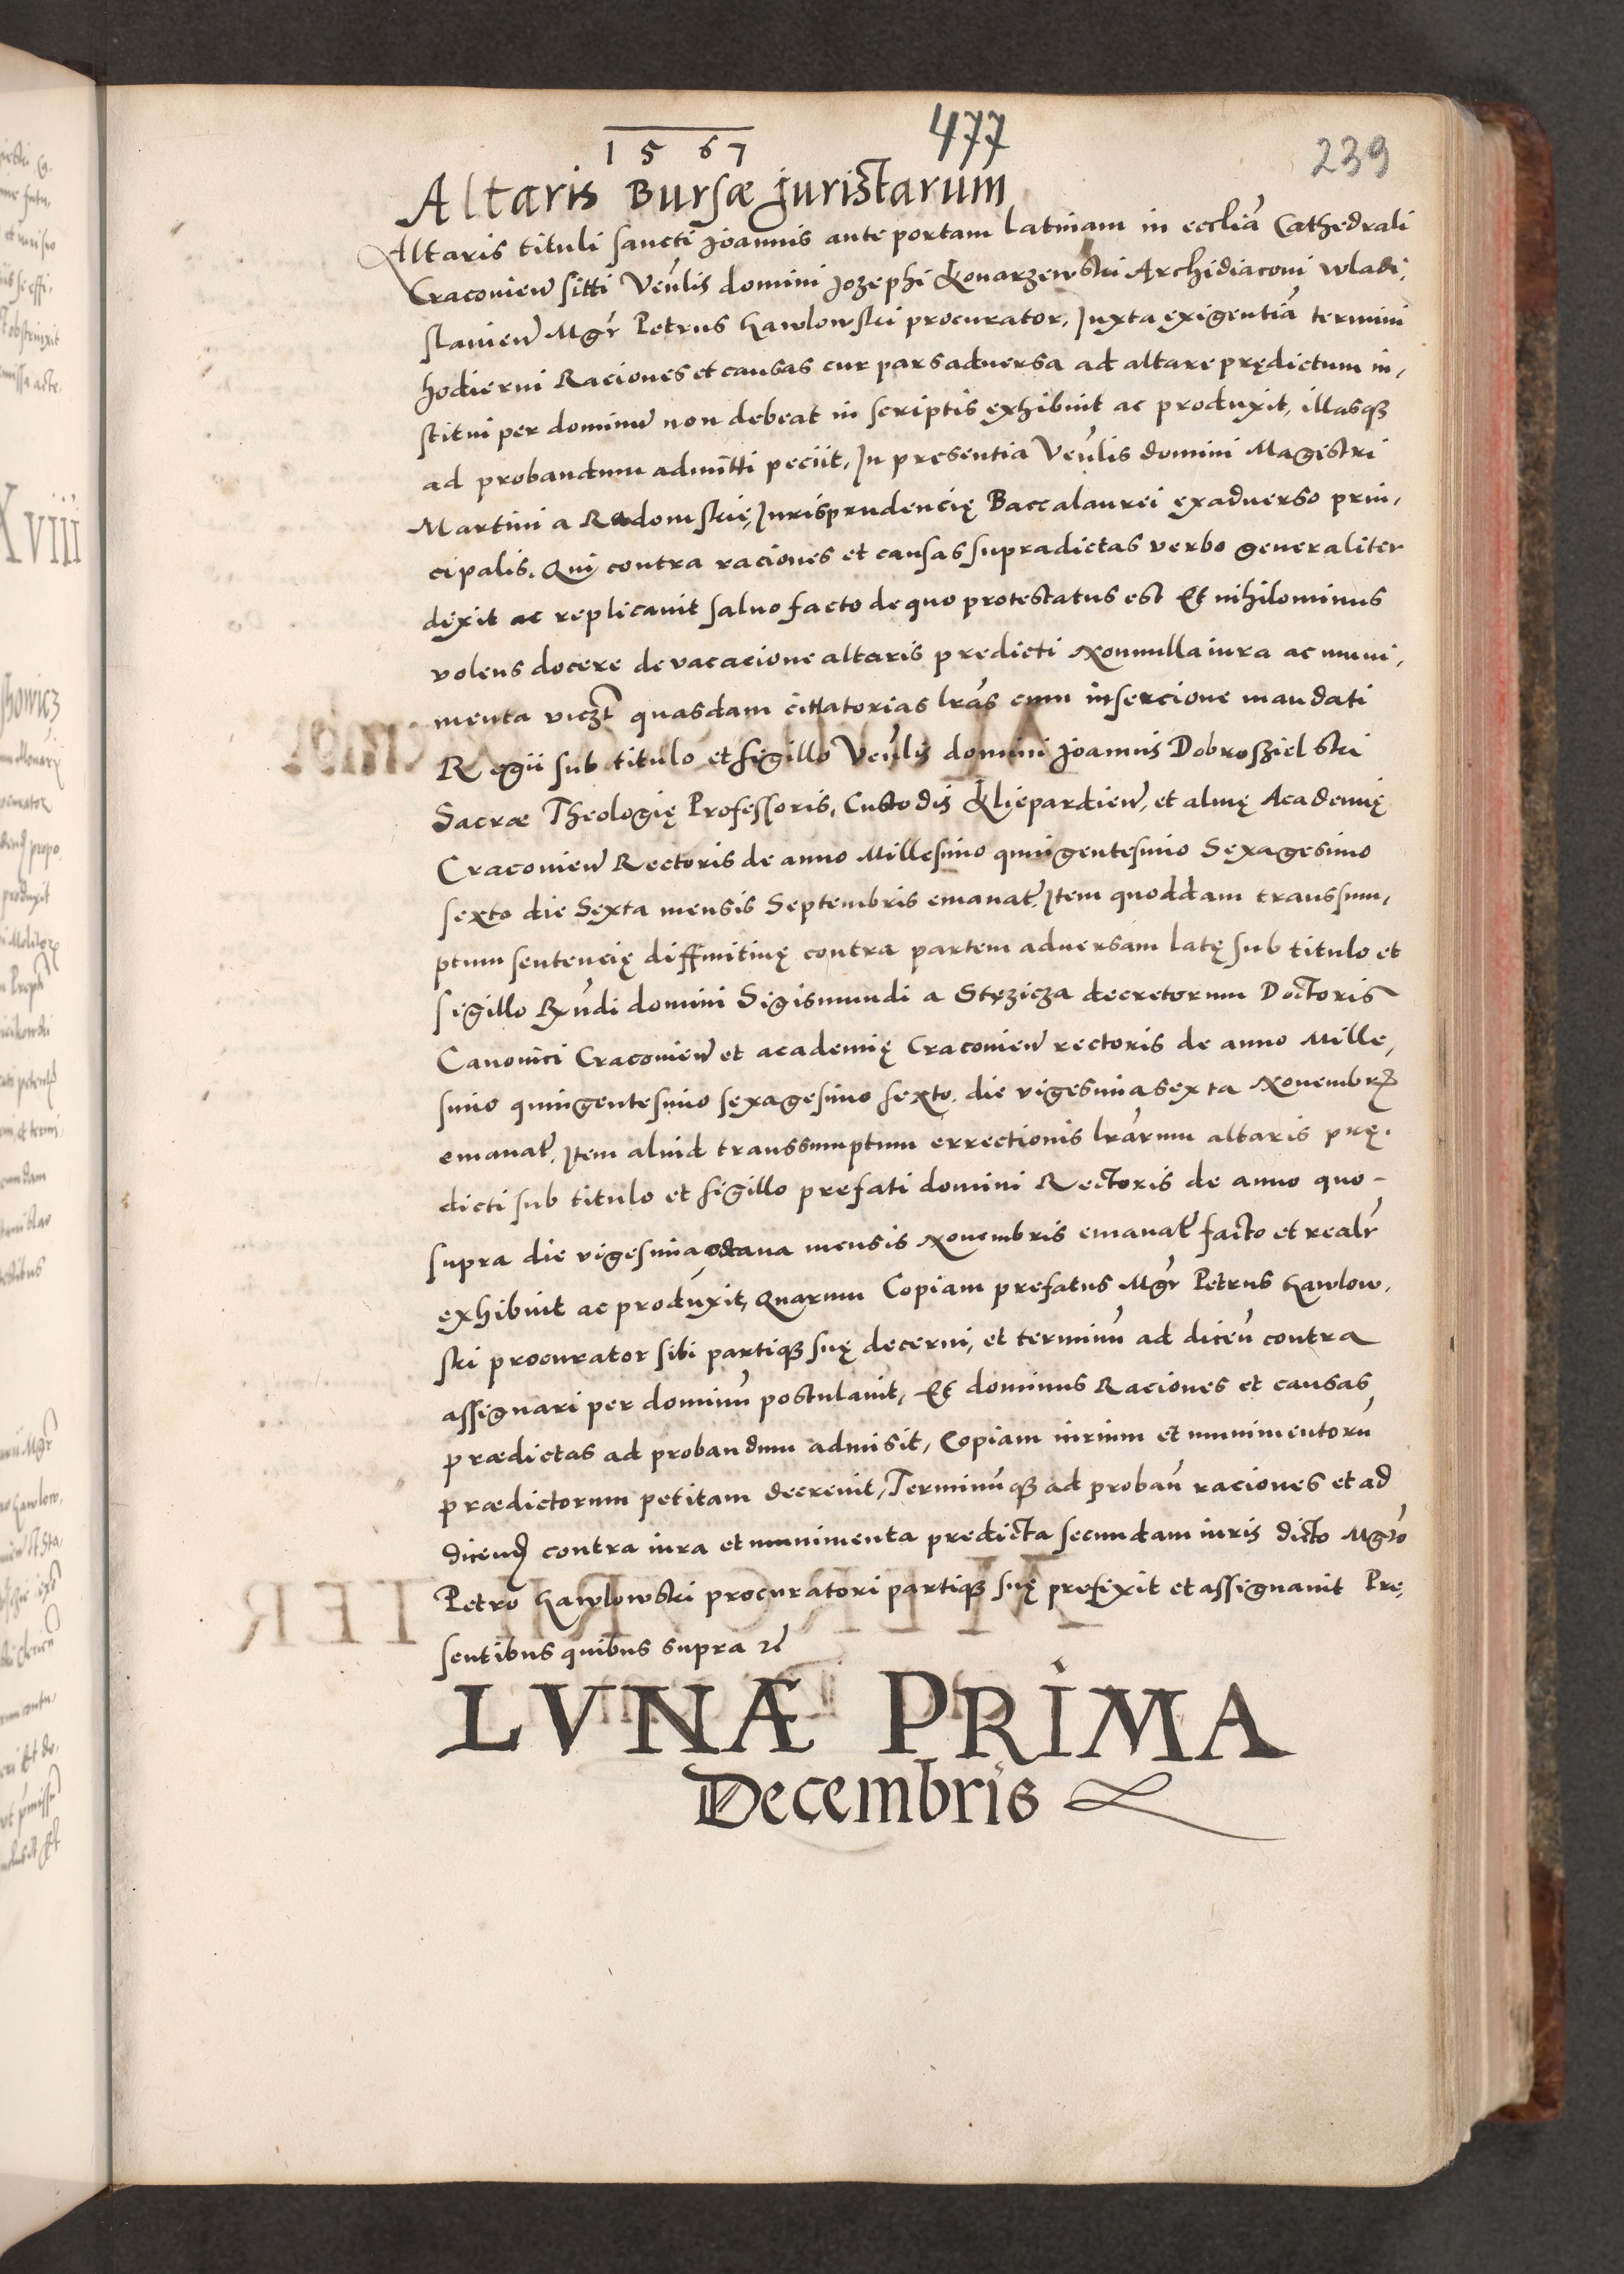 1567
477
239
Altaris Bursæ juristarum
Altaris tituli sancti Joannis ante portam Latinam in eccliã Cathedrali
Cracovien sitti Venlis domini Jozephi Konarzewski Archidiaconi wladi,
slavien Mgr Petrus Gawlowski procurator, Juxta exigentiã termini
hodierni Raciones et causas cur pars adversa ad altare prędictum in,
stitui per dominũ non debeat in scriptis exhibuit ac produxit, illasq3
ad probandum admitti peciit, In presentia Venlis domini Magistri
Martini a Radomskie, Jurisprudencię Baccalaurei ex adverso prin,
cipalis. Qui contra raciones et causas supradictas verbo generaliter
dixit ac replicavit salvo facto de quo protestatus est Et nihilominus
volens docere de vacacione altaris predicti Nonnulla iura ac muni,
menta viczt quasdam cittatorias lras cum insercione mandati
Regii sub titulo et sigillo Venlis domini Joannis Dobrosziel ski
Sacræ Theologię Professoris, Custodis Kliepardien, et almę Academię
Cracovien Rectoris de anno Millesimo quingentesimo Sexagesimo
sexto die Sexta mensis Septembris emanat, Item quoddam transsum,
ptum sentencię diffinitivę contra partem adversam latę sub titulo et
sigillo Rndi domini Sigismundi a Stęzicza decretorum Doctoris
Canonici Cracovien et academię Cracovien rectoris de anno Mille,
simo quingentesimo sexagesimo sexto. die vigesima sexta Novembr
emanat, Item aliud transsumptum errectionis lrarum altaris prę,
dicti sub titulo et sigillo prefati domini Rectoris de anno quo-
supra die vigesima octava mensis Novembris emanat facto et realr
exhibuit ac produxit, Quarum Copiam prefatus Mgr Petrus Gawlow,
ski procurator sibi partiq3 suę decerni, et terminũ ad dicen contra
assignari per dominũ postulavit, Et dominus Raciones et causas
prædictas ad probandum admisit, Copiam iurium et munimentorũ
prædictorum petitam decrevit, Terminũq3 ad proban raciones et ad
dicend contra iura et munimenta predicta secundam iuris dicto Mgro
Petro Gawlowski procuratori partiq3 suę prefixit et assignavit Pre,
sentibus quibus supra rc
LVNÆ PRIMA
Decembris